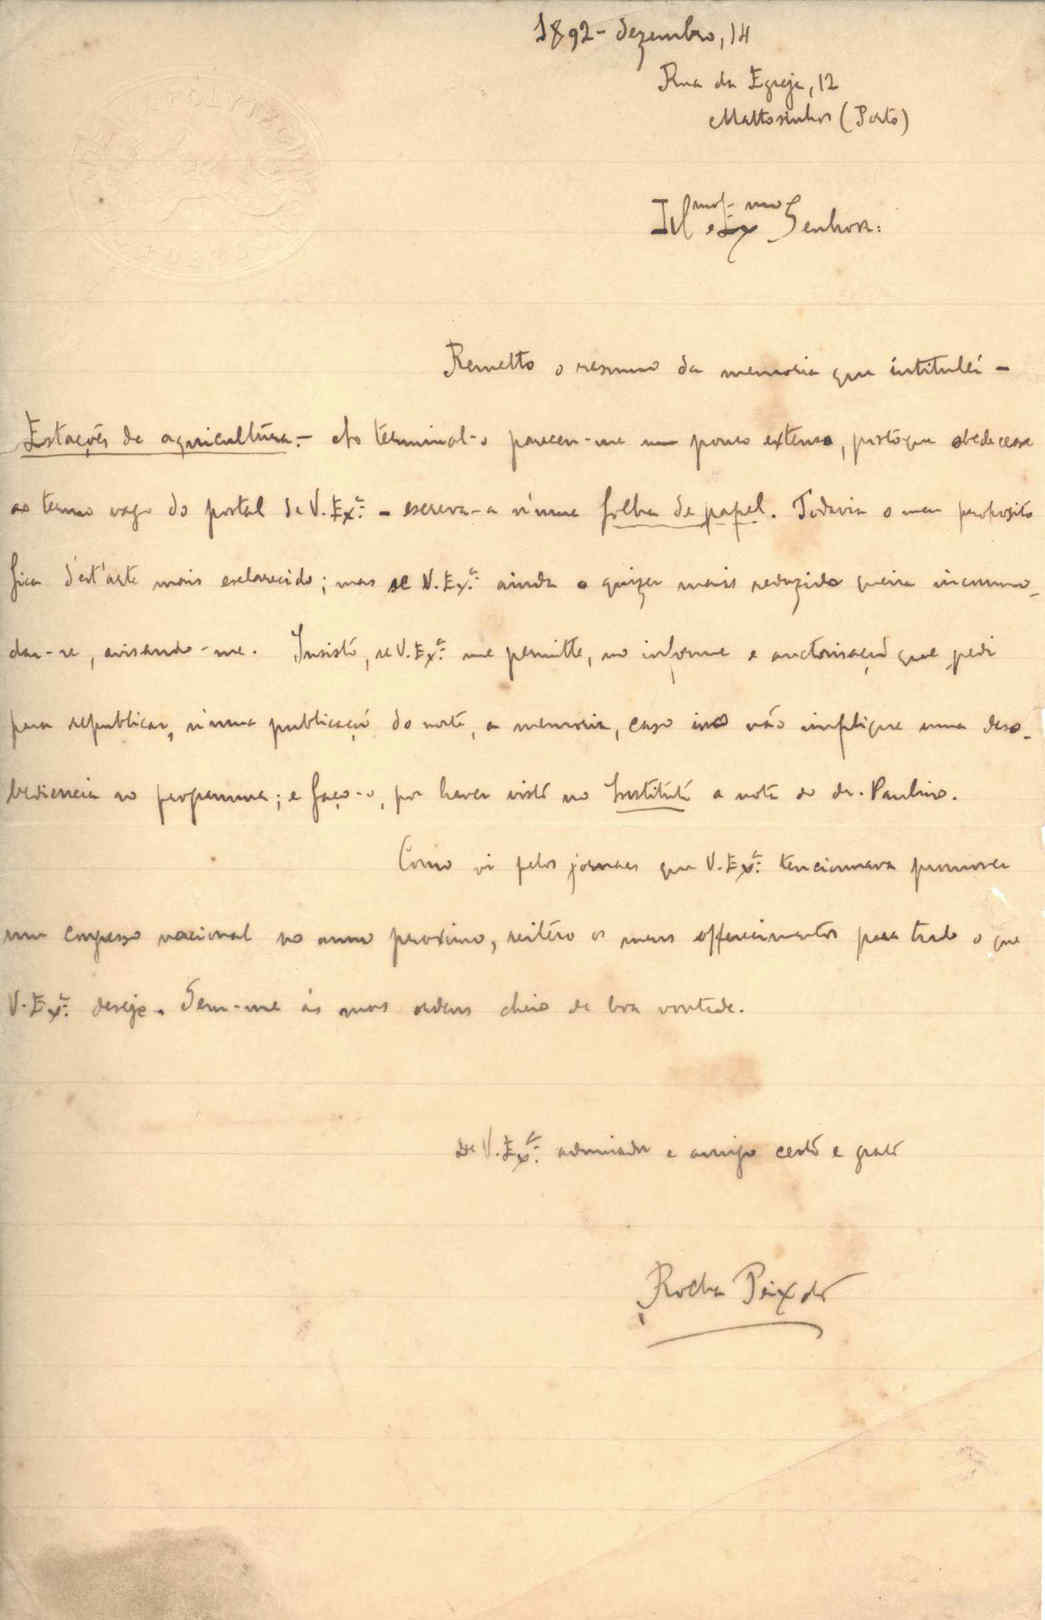 1892 - dezembro, 14
Rua da Egreja, 12
Mattosinhos (Porto)
Ill.mo e Ex.mo Senhor:
Remetto o resumo da memoria que intitulei -
Estações de agricultura. - Ao terminal-o pareceu-me um pouco extenso, postoque obedecesse
ao termo vago do postal de V. Ex.ª - escreva-a n'uma folha de papel. Todavia o meu proposito
fica d'est'arte mais esclarecido; mas se V. Ex.ª ainda o quizer mais reduzido queira incommo-
dar-se, avisando-me. Insisto, se V. Ex.ª me permitte, no informe e auctorisação que pedi
para republicar, n'uma publicação do norte, a memoria, caso isso não implique uma deso-
bediencia ao programma; e faço-o, por haver visto no Instituto a nota do dr. Paulino.
Como vi pelos jornaes que V. Ex.ª tencionava promover
um congresso nacional no anno proximo, reitéro os meus offerecimentos para tudo o que
V. Ex.ª deseje. Tem-me ás suas ordens cheio de boa vontade.
De V. Ex.ª admirador e amigo certo e grato
Rocha Peixoto